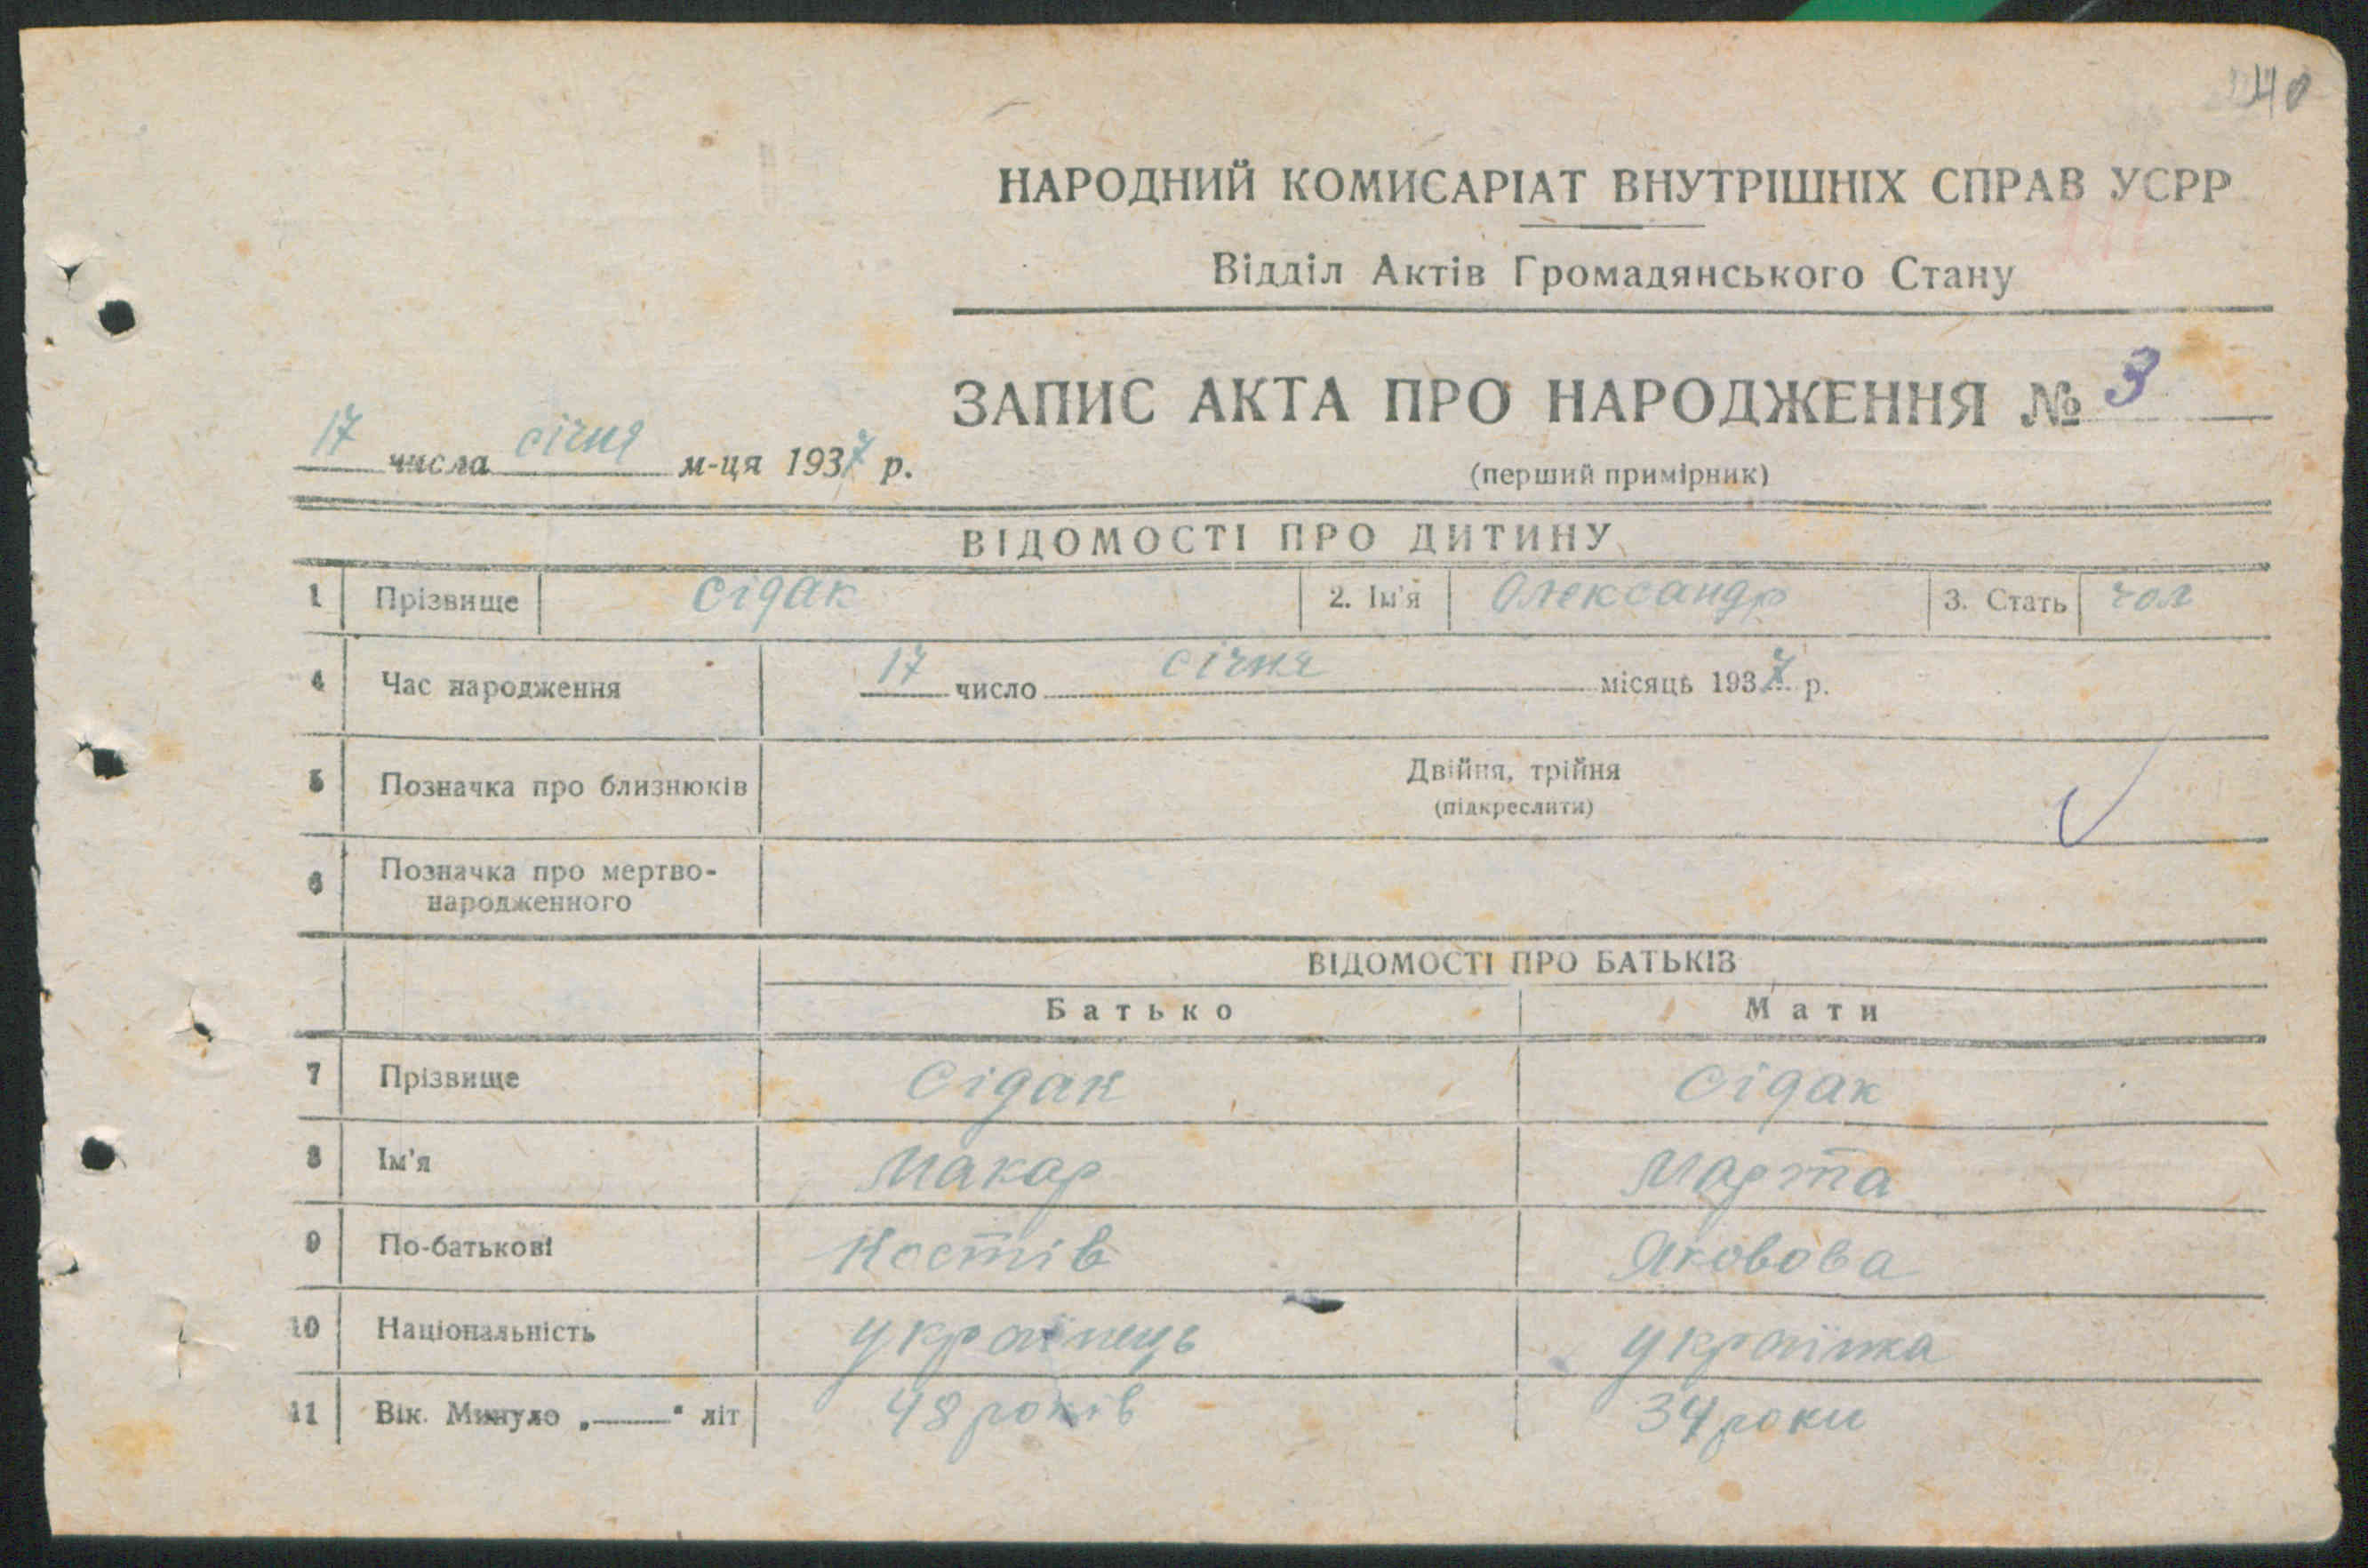 40
НАРОДНИЙ КОМИСАРІАТ ВНУТРІШНІХ СПРАВ УСРР
Відділ Актів Громадянського Стану
ЗАПИС АКТА ПРО НАРОДЖЕННЯ № 3
17 числа січня м-ця 1937 р.
(перший примірник)
ВІДОМОСТІ ПРО ДИТИНУ
1 Прізвище Сідак 2. Ім'я Олександр 3. Стать чол
4 Час народження 17 число січня місяць 1937 р.
5 Позначка про близнюків Двійня, трійня
(підкреслити)
6 Позначка про мертво-
народженного
ВІДОМОСТІ ПРО БАТЬКІВ
Батько Мати
7 Прізвище Сідак Сідак
8 Ім'я Макар Марта
9 По-батькові Костів Яковова
10 Національність українець українка
11 Вік. Минуло „ — “ літ 48 років 34 роки